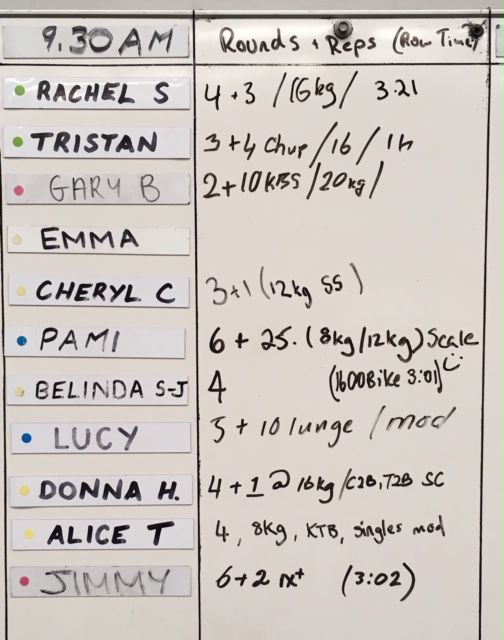 9.30 AM Rounds + Reps (Row Time)
RACHEL S 4 + 3 / 16kg / 3:21
TRISTAN 3 + 4 chup / 16 /
GARY B 2 + 10 KBS / 20kg /
EMMA
CHERYL C 3 + 1 (12kg SS)
PAMI 6 + 25. (8kg/12kg) Scale
BELINDA S-J 4 (1600Bike 3:01)
LUCY 5 + 10 lunge / mod
DONNA H. 4 + 1 @ 16kg / C2B, T2B SC
ALICE T 4, 8kg, KTB, singles mod
JIMMY 6 + 2 rx+ (3:02)